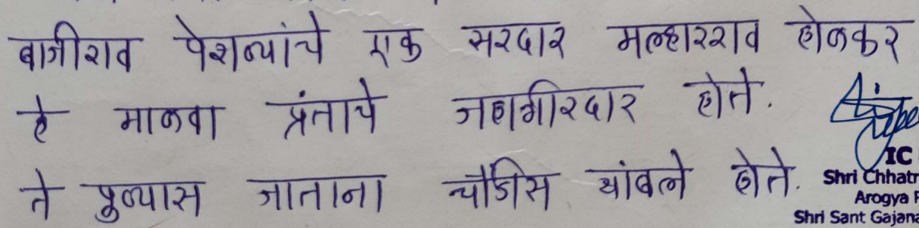 बाजीराव पेशव्यांचे एक सरदार मल्हारराव होळकर
हे माळवा प्रंताचे जहागीरदार होते.
ते पुण्यास जाताना चौंजिस थांबले होते.
IC
Shri Chhatr
Arogya P
Shri Sant Gajana